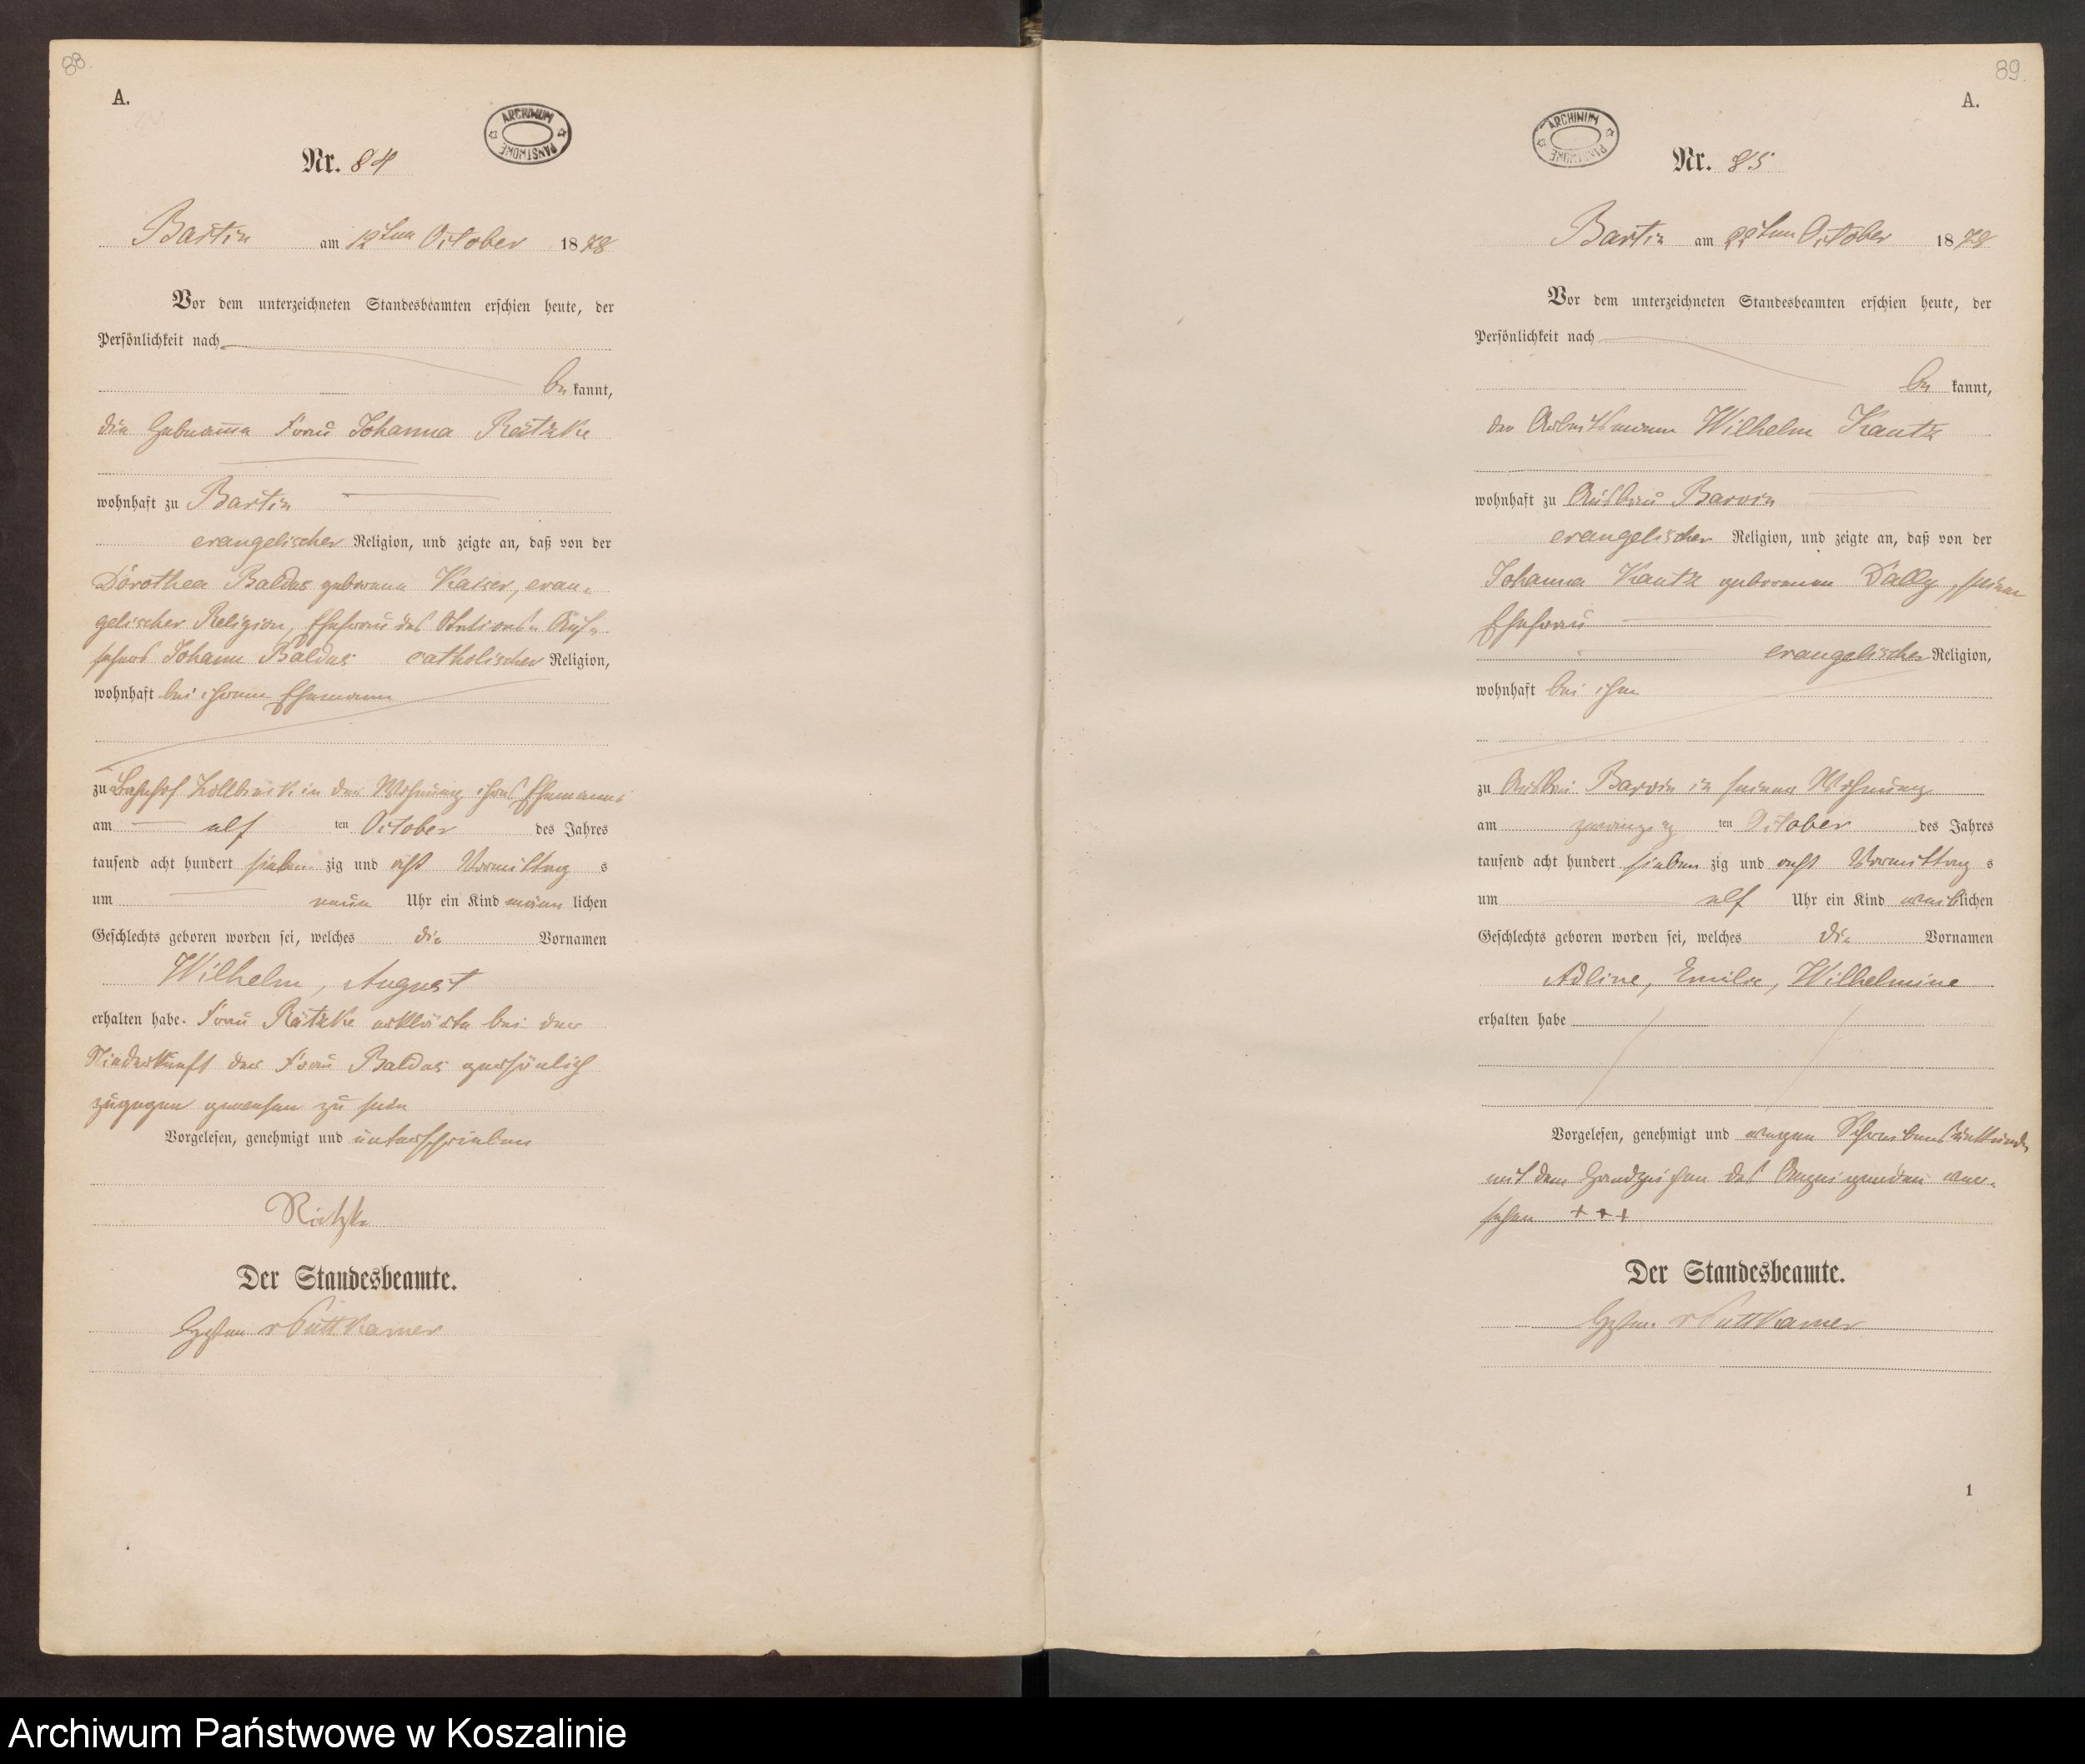 88.
A.
ARCHIWUM PAŃSTWOWE
Nr. 84
Bartin am 12ten October 1878
Vor dem unterzeichneten Standesbeamten erschien heute, der
Persönlichkeit nach
be kannt,
die Hebeamme Frau Johanna Rätzke
wohnhaft zu Bartin
evangelischer Religion, und zeigte an, daß von der
Dorothea Baldus geborene Kaiser, evan-
gelischer Religion, Ehefrau des Stations-Auf-
sehers Johann Baldus catholischer Religion,
wohnhaft bei ihrem Ehemann
zu Bahnhof Zollbrück in der Wohnung ihres Ehemannes
am elf ten October des Jahres
tausend acht hundert sieben zig und acht Vormittag s
um neun Uhr ein Kind männ lichen
Geschlechts geboren worden sei, welches die Vornamen
Wilhelm, August
erhalten habe. Frau Rätzke erklärte bei der
Niederkunft der Frau Baldus persönlich
zugegen gewesen zu sein
Vorgelesen, genehmigt und unterschrieben
Rätzke
Der Standesbeamte.
v Puttkamer
89.
A.
ARCHIWUM PAŃSTWOWE
Nr. 85
Bartin am 22ten October 1878
Vor dem unterzeichneten Standesbeamten erschien heute, der
Persönlichkeit nach
be kannt,
der Arbeitsmann Wilhelm Kautz
wohnhaft zu Ausbau Barvin
evangelischer Religion, und zeigte an, daß von der
Johanna Kautz geborenen Dally, seiner
Ehefrau
evangelischer Religion,
wohnhaft bei ihm
zu Ausbau Barvin in seiner Wohnung
am zwanzig ten October des Jahres
tausend acht hundert sieben zig und acht Vormittag s
um elf Uhr ein Kind weib lichen
Geschlechts geboren worden sei, welches die Vornamen
Adline, Emilie, Wilhelmine
erhalten habe
Vorgelesen, genehmigt und wegen Schreibensunkunde
mit dem Handzeichen des Anzeigenden ver-
sehen +++
Der Standesbeamte.
v Puttkamer
1
Archiwum Państwowe w Koszalinie